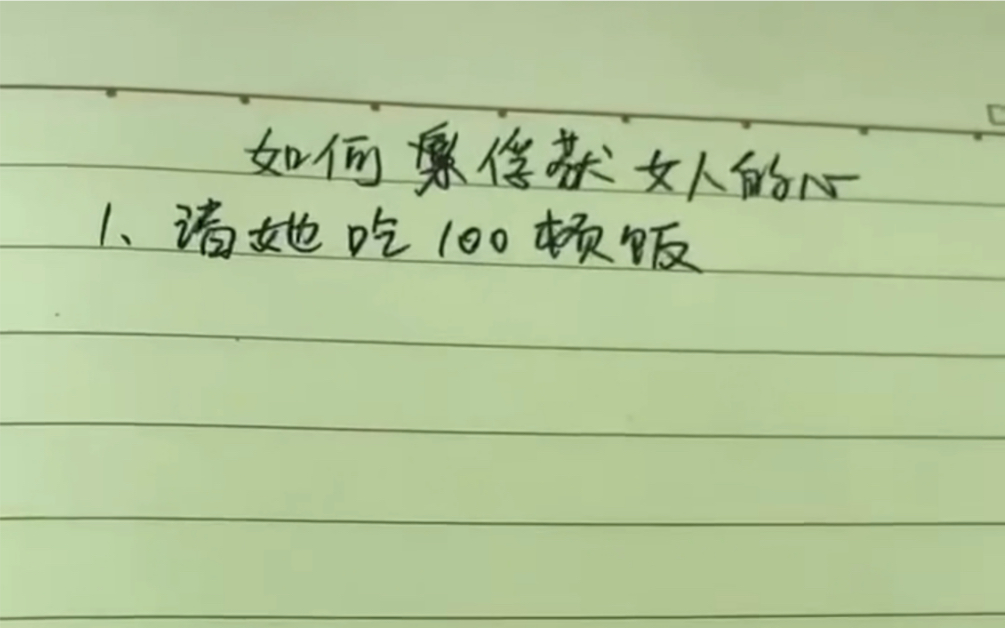 如何俘获女人的心
1、请她吃100顿饭